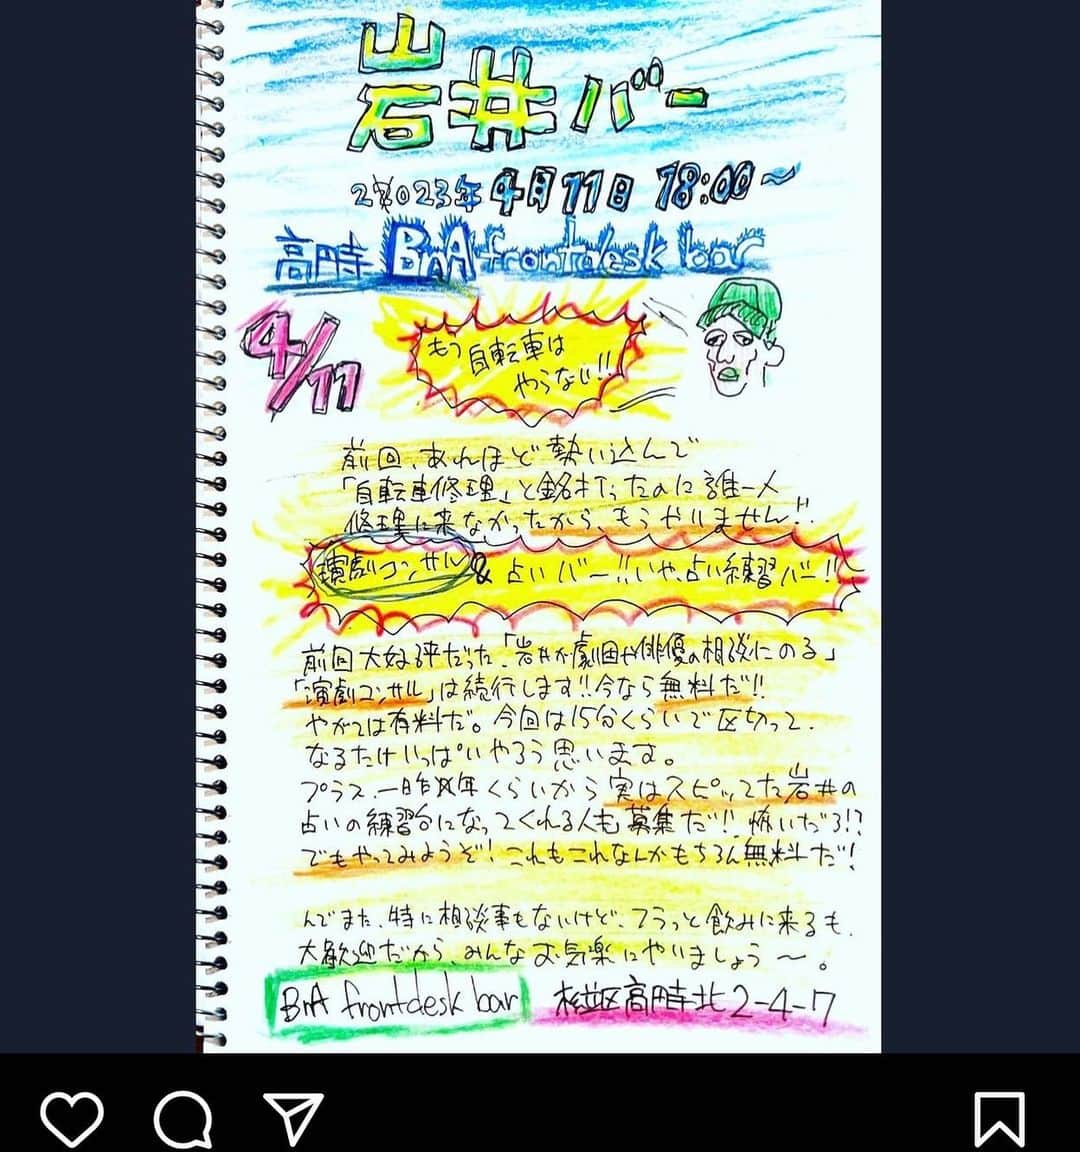 岩井バー
2023年4月11日 18:00〜
高円寺 BnA frontdesk bar
4/11
もう自転車は
やらない!!
前回、あれほど勢い込んで
「自転車修理」と銘打ったのに誰一人
修理に来なかったから、もうやりません!!
演劇コンサル & 占いバー!!いや、占い練習バー!!
前回大好評だった、「岩井が劇団や俳優の相談にのる」
「演劇コンサル」は続行します!!今なら無料だ!!
やがては有料だ。今回は15分くらいで区切って、
なるたけいっぱいやろう思います。
プラス、一昨年くらいから実はスピッてた岩井の
占いの練習台になってくれる人も募集だ!! 怖いだろ!?
でもやってみようぞ! これもこれなんかもちろん無料だ!
んでまた、特に相談事もないけど、フラっと飲みに来るも、
大歓迎だから、みんなお気楽にやいましょう〜。
BnA frontdesk bar 杉並区高円寺北2-4-7